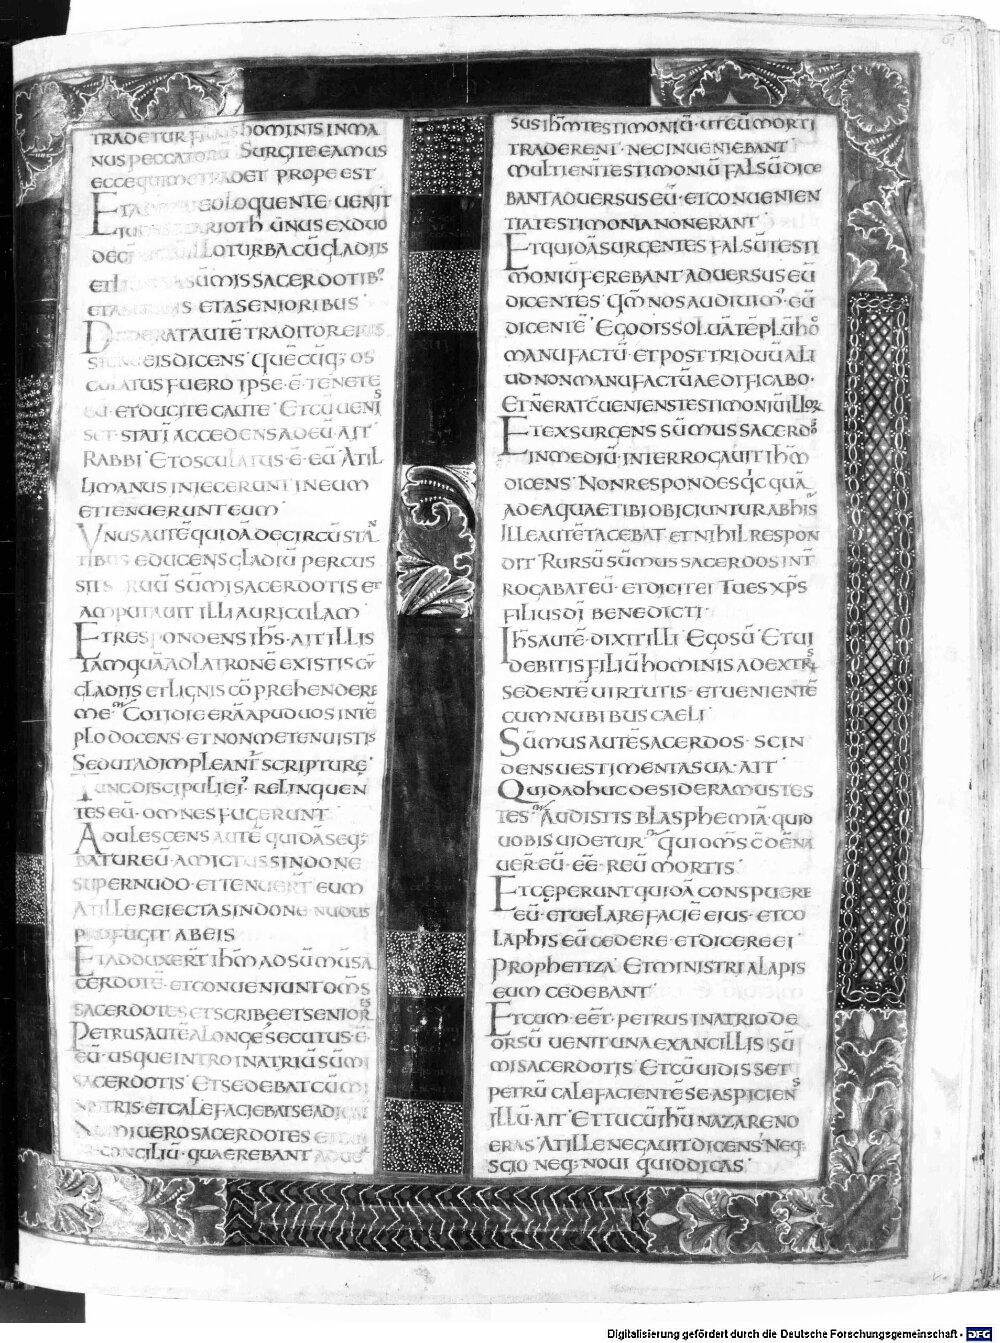 TRADETUR FILIUS HOMINIS IN MA
NUS PECCATORŪ SURGITE EAMUS
ECCE QUI ME TRADET PROPE EST
ET ADHUC EO LOQUENTE· UENIT
IUDAS SCARIOTH UNUS EX DUO
DECĪ ET CŪ ILLO TURBA CŪ GLADIIS
ET LIGNIS A SŪMIS SACERDOTIB;
ET A SCRIBIS ET A SENIORIBUS
DEDERAT AUTĒ TRADITOR EIUS
SIGNŪ EIS DICENS QUĒCŪQ; OS
CULATUS FUERO IPSE· Ē· TENETE
EŪ· ET DUCITE CAUTE ET CŪ UENIS
SET· STATĪ ACCEDENS AD EŪ AIT
RABBI ET OSCULATUS· Ē· EŪ AT IL
LI MANUS INIECERUNT IN EUM
ET TENUERUNT EUM
UNUS AUTĒ QUIDĀ DE CIRCŪSTAN
TIBUS EDUCENS GLADIŪ PERCUS
SIT SERUŪ SŪMI SACERDOTIS ET
AMPUTAUIT ILLI AURICULAM
ET RESPONDENS IHS· AIT ILLIS
TAMQUĀ AD LATRONĒ EXISTIS CŪ
GLADIIS ET LIGNIS CŌPREHENDERE
ME COTIDIE ERĀ APUD UOS IN TĒ
PLO DOCENS· ET NON ME TENUISTIS
SED UT ADIMPLEANT SCRIPTURĘ
TUNC DISCIPULI EI; RELINQUEN
TES EŪ· OMNES FUGERUNT
ADULESCENS AUTĒ QUIDĀ SEQ;
BATUR EŪ· AMICTUS SINDONE
SUPER NUDO· ET TENUERT̄ EUM
AT ILLE REIECTA SINDONE NUDUS
PROFUGIT AB EIS
ET ADDUXERT̄ IHM̄ AD SŪMŪ SA
CERDOTĒ· ET CONUENIUNT OMS̄
SACERDOTES ET SCRIBĘ ET SENIORES
PETRUS AUTĒ A LONGE SECUTUS· Ē·
EŪ· USQUE INTRO IN ATRIŪ SŪMI
SACERDOTIS ET SEDEBAT CŪ MI
NISTRIS· ET CALEFACIEBAT SE AD IGNĒ
SUMMI UERO SACERDOTES ET OM̄E
CONCILIŪ· QUAEREBANT ADUER
SUS IHM̄ TESTIMONIŪ· UT EŪ MORTI
TRADERENT· NEC INUENIEBANT
MULTI ENĪ TESTIMONIŪ FALSŪ DICE
BANT ADUERSUS EŪ· ET CONUENIEN
TIA TESTIMONIA NON ERANT
ET QUIDĀ SURGENTES FALSŪ TESTI
MONIŪ FEREBANT ADUERSUS EŪ
DICENTES QM̄ NOS AUDIUIM; EŪ
DICENTĒ EGO DISSOLUĀ TĒPLŪ HO
MANUFACTŪ· ET POST TRIDUŪ ALI
UD NON MANUFACTŪ AEDIFICABO·
ET N̄ ERAT CUENIENS TESTIMONIŪ ILLOR
ET EXSURGENS SŪMUS SACERDOS
IN MEDIŪ· INTERROGAUIT IHM̄
DICENS NON RESPONDES QC QUĀ
AD EA QUAE TIBI OBICIUNTUR AB HIS
ILLE AUTĒ TACEBAT ET NIHIL RESPON
DIT RURSŪ SŪMUS SACERDOS INT̄
ROGABAT EŪ· ET DICIT EI TU ES XP̄S
FILIUS DĪ BENEDICTI
IHS̄ AUTĒ· DIXIT ILLI EGO SŪ ET UI
DEBITIS FILIŪ HOMINIS A DEXTRIS
SEDENTĒ UIRTUTIS· ET UENIENTĒ
CUM NUBIBUS CAELI
SŪMUS AUTĒ SACERDOS· SCIN
DENS UESTIMENTA SUA· AIT
QUID ADHUC DESIDERAMUS TES
TES AUDISTIS BLASPHEMIĀ· QUID
UOBIS UIDETUR QUI OMS̄ CŌDĒNA
UER̄ EŪ· EĒ· REŪ MORTIS
ET CĘPERUNT QUIDĀ CONSPUERE
EŪ· ET UELARE FACIĒ EIUS· ET CO
LAPHIS EŪ CEDERE· ET DICERE EI
PROPHETIZA ET MINISTRI ALAPIS
EUM CEDEBANT
ET CUM· EĒT· PETRUS IN ATRIO DE
ORSŪ UENIT UNA EX ANCILLIS SŪ
MI SACERDOTIS ET CŪ UIDISSET
PETRŪ CALEFACIENTĒ SE· ASPICIENS
ILLŪ· AIT ET TU CŪ IHŪ NAZARENO
ERAS AT ILLE NEGAUIT DICENS NEQ;
SCIO NEQ; NOUI QUID DICAS·
Digitalisierung gefördert durch die Deutsche Forschungsgemeinschaft - DFG